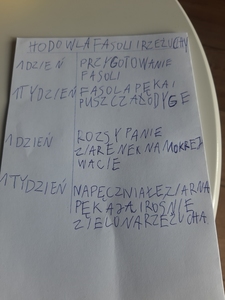 HODOWLA FASOLI I RZEŻUCHY
1 DZIEŃ PRZYGOTOWANIE
FASOLI
1 TYDZIEŃ FASOLA PĘKA I
PUSZCZA ŁODYGĘ
1 DZIEŃ ROZSYPANIE
ZIARENEK NA MOKREJ
WACIE
1 TYDZIEŃ NAPĘCZNIAŁE ZIARNA
PĘKAJĄ I ROŚNIE
ZIELONA RZEŻUCHA